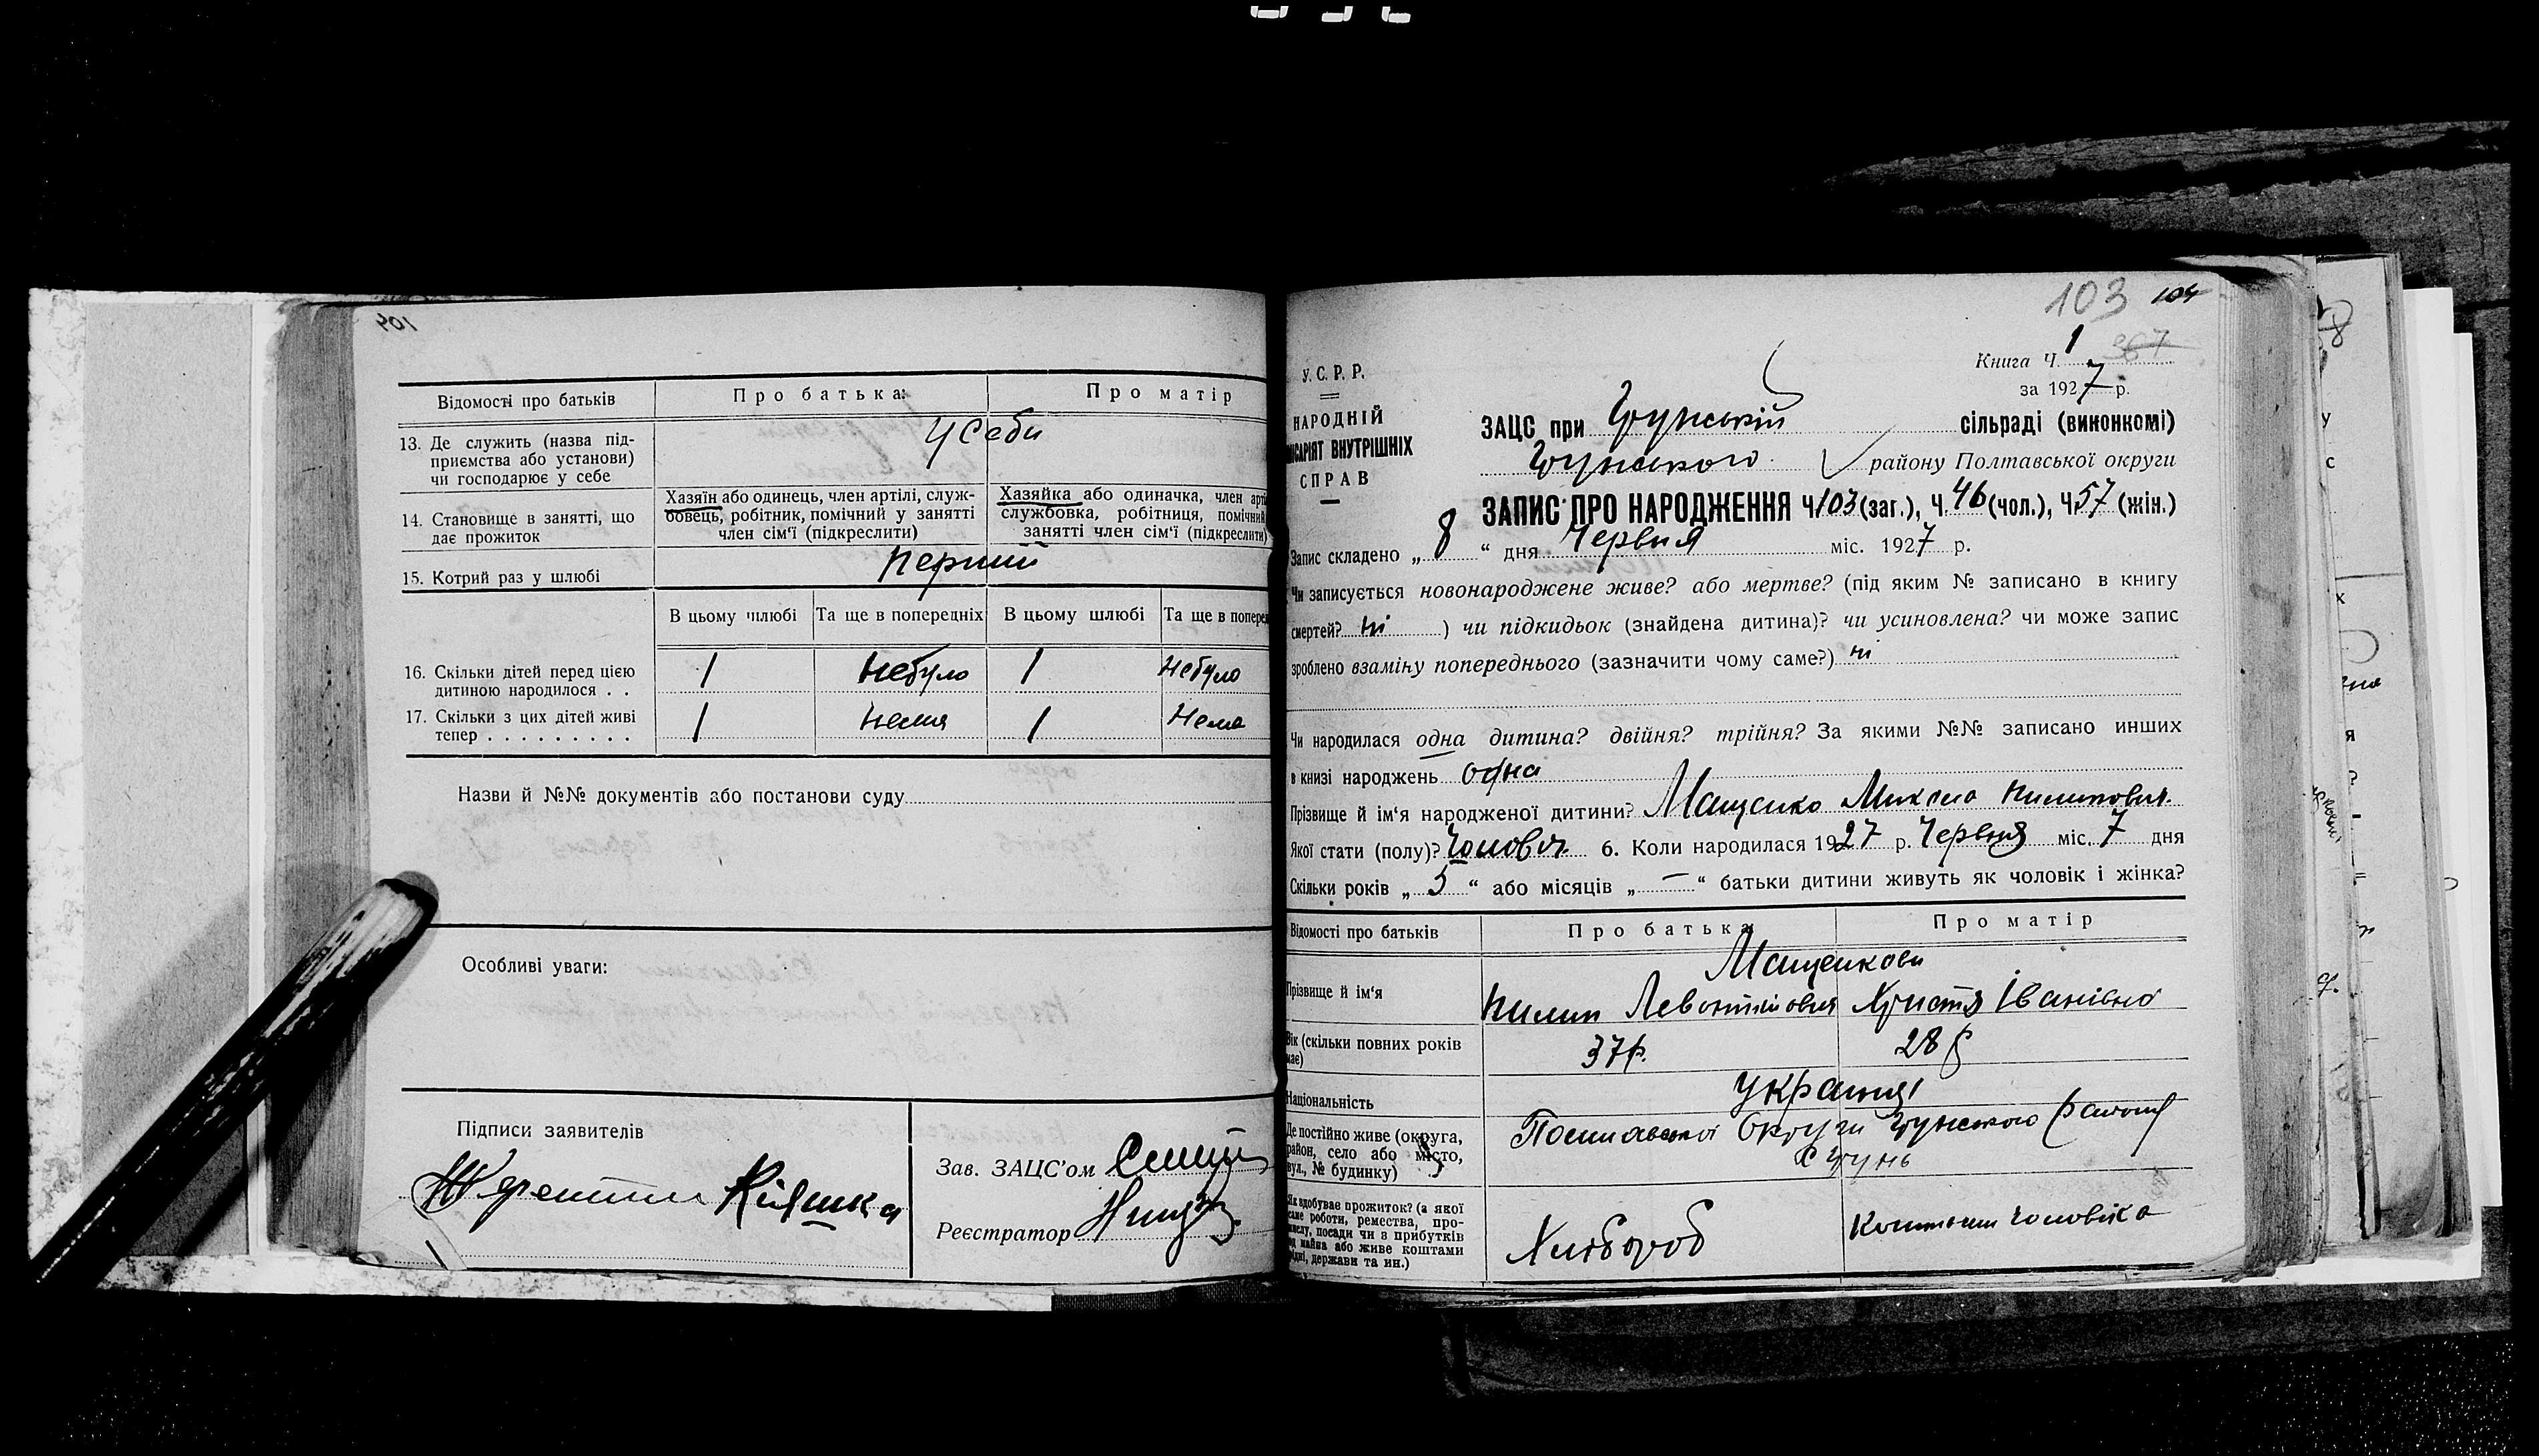 104
Відомості про батьків
Про батька:
Про матір
13. Де служить (назва під-
приємства або установи)
чи господарює у себе
у себи
14. Становище в занятті, що
дає прожиток
Хазяїн або одинець, член артілі, служ-
бовець, робітник, помічний у занятті
член сім'ї (підкреслити)
Хазяйка або одиначка, член арті
службовка, робітниця, помічний
занятті член сім'ї (підкреслити)
15. Котрий раз у шлюбі
перший
В цьому шлюбі
Та ще в попередніх
В цьому шлюбі
Та ще в поперед
16. Скільки дітей перед цією
дитиною народилося . .
1 небуло 1 небуло
17. Скільки з цих дітей живі
тепер . . . . . . . . .
1 нема 1 нема
Назви й №№ документів або постанови суду
Особливі уваги:
Підписи заявителів
Зав. ЗАЦС'ом
Реєстратор
103 104
Книга Ч. 1 367
за 1927 р.
У.С.Р.Р.
НАРОДНІЙ
МІСАРІЯТ ВНУТРІШНІХ
СПРАВ
ЗАЦС при Грунській сільраді (виконкомі)
Грунського району Полтавської округи
ЗАПИС ПРО НАРОДЖЕННЯ Ч 103 (заг.), Ч. 46 (чол.), Ч 57 (жін.)
Запис складено „ 8 “ дня Червня міс. 1927 р.
Чи записується новонароджене живе? або мертве? (під яким № записано в книгу
смертей? ні ) чи підкидьок (знайдена дитина)? чи усиновлена? чи може запис
зроблено взаміну попереднього (зазначити чому саме?) ні
Чи народилася одна дитина? двійня? трійня? За якими №№ записано инших
в книзі народжень одна
Прізвище й ім'я народженої дитини? Мащенко Микола Пилипович.
Якої стати (полу)? Чоловіч. 6. Коли народилася 1927 р. Червня міс. 7 дня
Скільки років „ 5 “ або місяців „ — “ батьки дитини живуть як чоловік і жінка?
Відомості про батьків
Про батька
Про матір
Мащенкови
Прізвище й ім'я
Пилип Левонтійович Христя Іванівна
Вік (скільки повних років
має)
37р. 28р
Національність
Україньці
Де постійно живе (округа,
район, село або місто,
вул., № будинку)
Полтавської Округи Грунського району
с Грунь
Як здобуває прожиток? (з якої
саме роботи, ремества, про-
мислу, посади чи з прибутків
од майна або живе коштами
рідні, держави та ин.)
Хлібороб
Коштами чоловіка